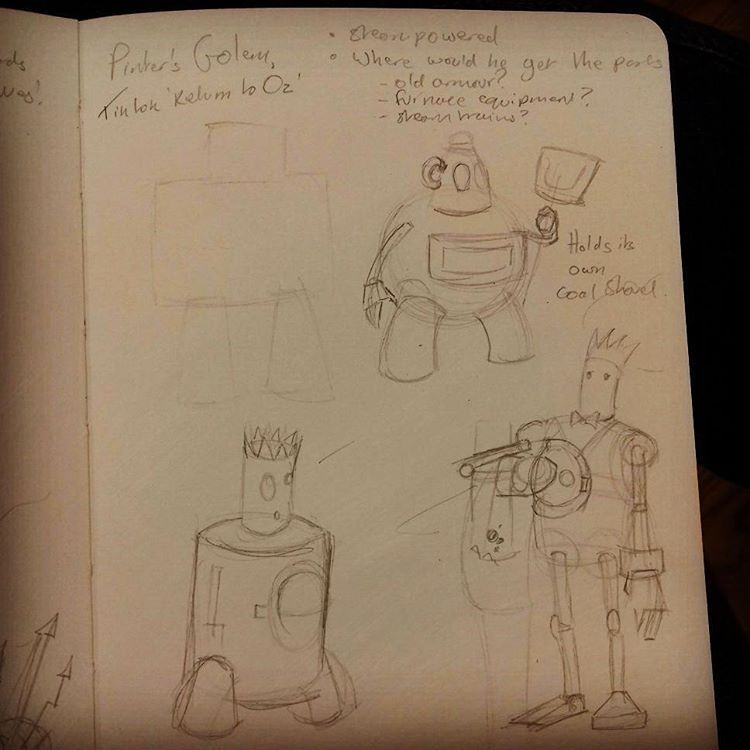 ds
ves!
Pinter's Golem,
Tin tok 'Return to Oz'
• Steam powered
• Where would he get the parts
- old armour?
- furnace equipment?
- steam trains?
Holds its
own
Coal Shovel.